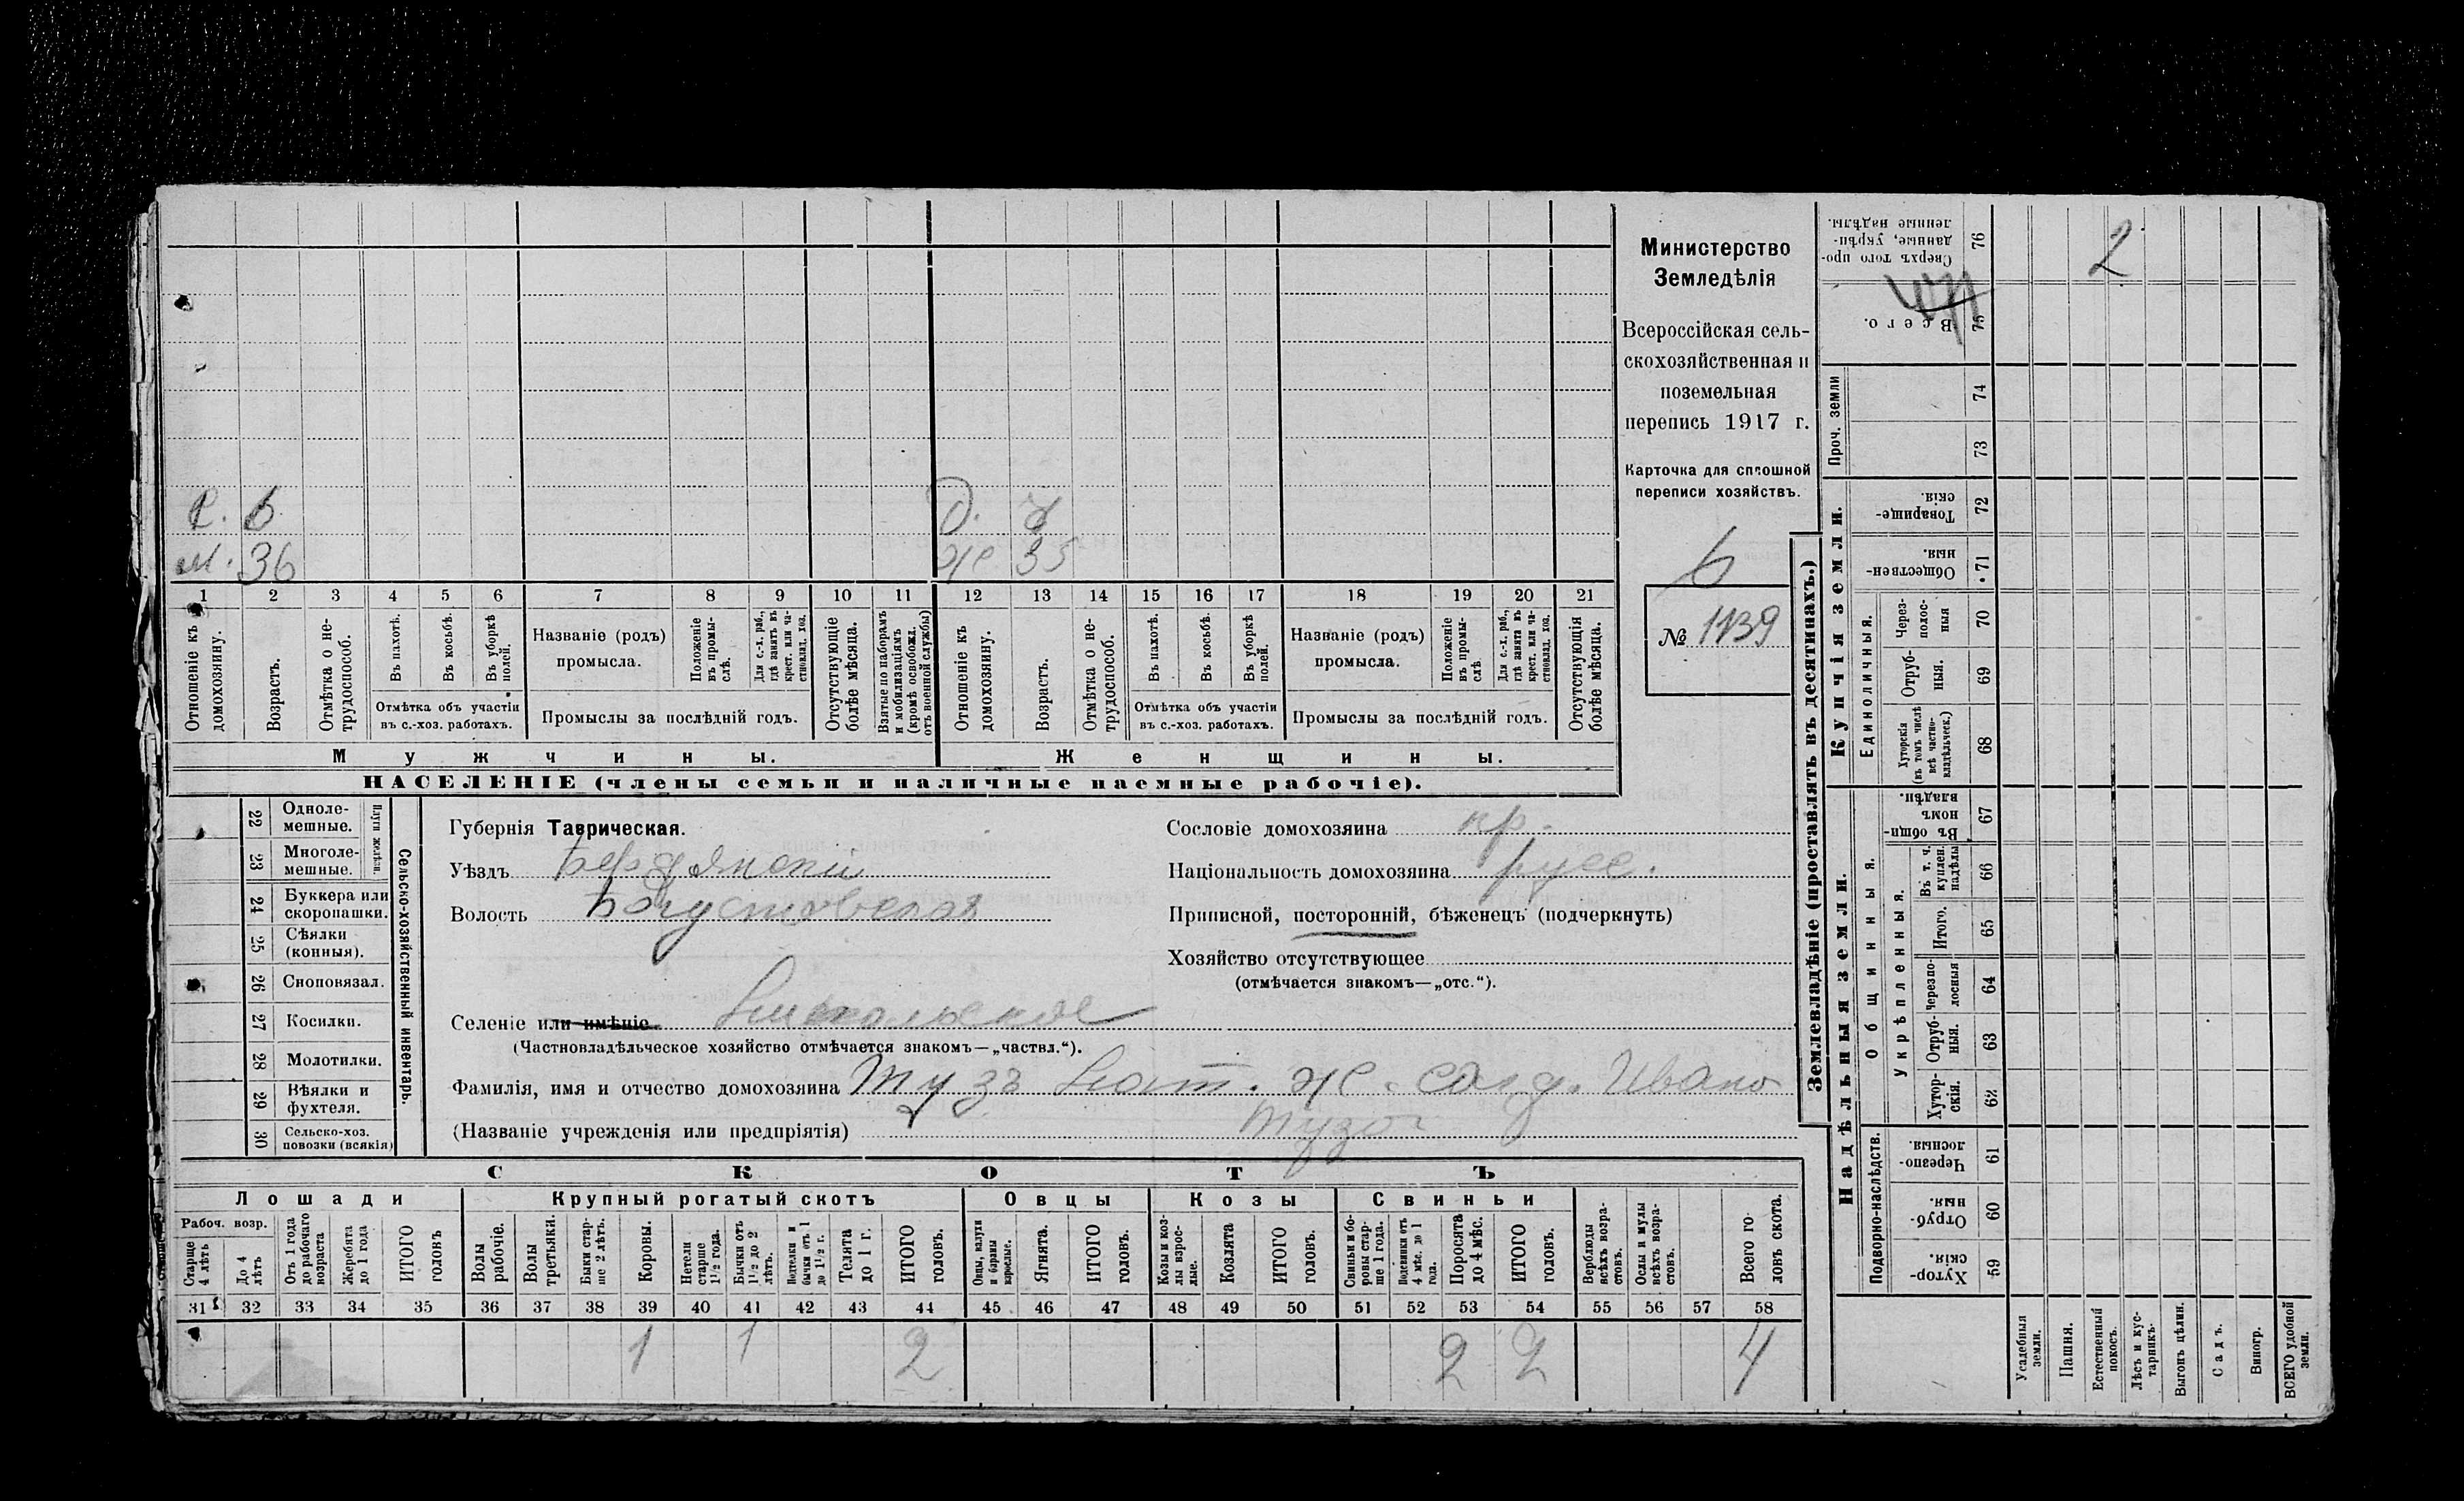 Р. 6. Д. 7
М. 36 Ж 35
1 2 3 4 5 6 7 8 9 10 11 12 13 14 15 16 17 18 19 20 21
Отношеніе къ домохозяину.
Возрастъ.
Отмѣтка о нетрудоспособ.
Въ пахотѣ.
Въ косьбѣ.
Въ уборкѣ полей.
Отмѣтка объ участіи
въ с.-хоз. работахъ.
Названіе (родъ)
промысла.
Положеніе въ промыслѣ.
Для с.-х. раб., гдѣ занятъ въ крест. или частновлад. хоз.
Промыслы за послѣдній годъ.
Отсутствующіе болѣе мѣсяца.
Взятые по наборамъ и мобилизаціямъ (кромѣ освобожд. отъ военной службы)
Отношеніе къ домохозяину.
Возрастъ.
Отмѣтка о нетрудоспособ.
Въ пахотѣ.
Въ косьбѣ.
Въ уборкѣ полей.
Отмѣтка объ участіи
въ с.-хоз. работахъ.
Названіе (родъ)
промысла.
Положеніе въ промыслѣ.
Для с.-х. раб., гдѣ занята въ крест. или частновлад. хоз.
Промыслы за послѣдній годъ.
Отсутствующія болѣе мѣсяца.
Мужчины. Женщины.
НАСЕЛЕНІЕ (члены семьи и наличные наемные рабочіе).
Министерство
Земледѣлія
Всероссійская сель-
скохозяйственная и
поземельная
перепись 1917 г.
Карточка для сплошной
переписи хозяйствъ.
6
№ 1139
22 Одноле-
мешные.
23 Многоле-
мешные.
Плуги желѣзн.
24 Буккера или
скоропашки.
25 Сѣялки
(конныя).
26 Сноповязал.
27 Косилки.
28 Молотилки.
29 Вѣялки и
фухтеля.
30 Сельско-хоз.
повозки (всякія)
Сельско-хозяйственный инвентарь.
Губернія Таврическая.
Уѣздъ Бердянскій
Волость
Селеніе или имѣніе
(Частновладѣльческое хозяйство отмѣчается знакомъ—„частвл.“).
Фамилія, имя и отчество домохозяина Тузъ ж. солд. Ивана
(Названіе учрежденія или предпріятія) Туза
Сословіе домохозяина кр.
Національность домохозяина русс.
Приписной, посторонній, бѣженецъ (подчеркнуть)
Хозяйство отсутствующее
(отмѣчается знакомъ—„отс.“).
СКОТЪ
Лошади Крупный рогатый скотъ Овцы Козы Свиньи
Рабоч. возр.
Старше 4 лѣтъ
До 4 лѣтъ
Отъ 1 года до рабочаго возраста
Жеребята до 1 года
ИТОГО головъ
Волы рабочіе.
Волы третьяки.
Быки старше 2 лѣтъ.
Коровы.
Нетели старше 1½ года.
Бычки отъ 1½ до 2 лѣтъ.
Подтелки и бычки отъ 1 до 1½ г.
Телята до 1 г.
ИТОГО головъ.
Овцы, валухи и бараны взрослые.
Ягнята.
ИТОГО головъ.
Козы и козлы взрослые.
Козлята
ИТОГО головъ.
Свиньи и боровы старше 1 года.
Подсвинки отъ 4 мѣс. до 1 года.
Поросята до 4 мѣс.
ИТОГО головъ.
Верблюды всѣхъ возрастовъ.
Ослы и мулы всѣхъ возрастовъ.
Всего головъ скота.
31 32 33 34 35 36 37 38 39 40 41 42 43 44 45 46 47 48 49 50 51 52 53 54 55 56 57 58
1 1 2 2 2 4
Землевладѣніе (проставлять въ десятинахъ.)
Сверхъ того проданные, укрѣпленные надѣлы. 76 2
471
Всего. 75
Проч. земли 74
73
Купчія земли.
Товарищескія. 72
Общественныя. 71
Единоличныя.
Черезполосныя 70
Отрубныя. 69
Хуторскія (въ томъ числѣ всѣ частновладѣльческ.) 68
Надѣльныя земли.
Общинныя.
Въ общиномъ владѣн. 67
Укрѣпленныя.
Въ т. ч. куплен. надѣлы 66
Итого. 65
Черезполосныя 64
Отрубныя. 63
Хуторскія. 62
Подворно-наслѣдств.
Черезполосныя. 61
Отрубныя. 60
Хуторскія. 59
Усадебныя земли.
Пашня.
Естественный покосъ.
Лѣсъ и кустарникъ.
Выгонъ цѣлин.
Садъ.
Виногр.
ВСЕГО удобной земли.